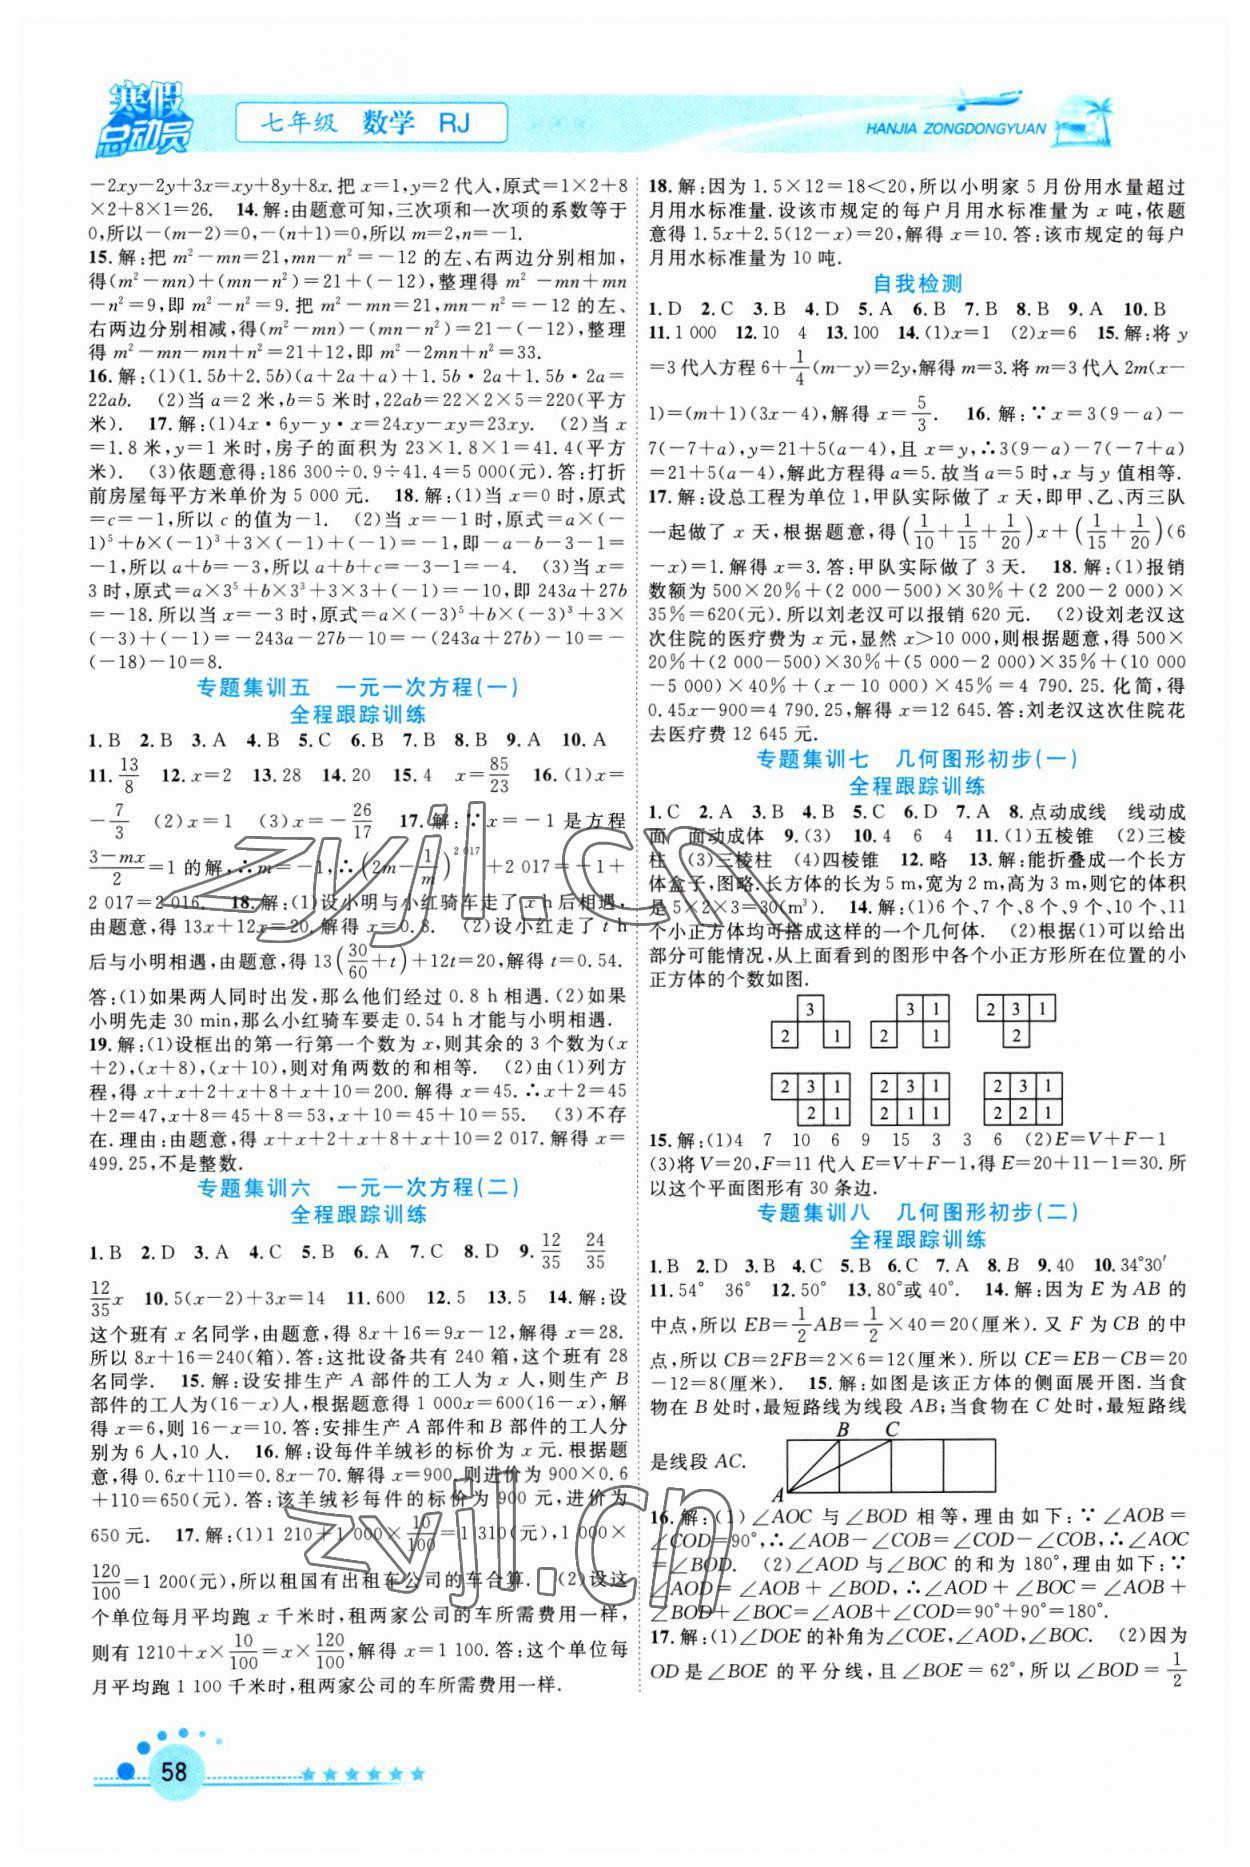 寒假总动员
七年级 数学 RJ
HANJIA ZONGDONGYUAN
-2xy-2y+3x=xy+8y+8x.把 x=1,y=2 代入,原式=1×2+8
×2+8×1=26. 14.解:由题意可知,三次项和一次项的系数等于
0,所以-(m-2)=0,-(n+1)=0,所以 m=2,n=-1.
15.解:把 m²-mn=21,mn-n²=-12 的左、右两边分别相加,
得(m²-mn)+(mn-n²)=21+(-12),整理得 m²-mn+mn-
n²=9,即 m²-n²=9.把 m²-mn=21,mn-n²=-12 的左、
右两边分别相减,得(m²-mn)-(mn-n²)=21-(-12),整理
得 m²-mn-mn+n²=21+12,即 m²-2mn+n²=33.
16.解:(1)(1.5b+2.5b)(a+2a+a)+1.5b·2a+1.5b·2a=
22ab. (2)当 a=2 米,b=5 米时,22ab=22×2×5=220(平方
米). 17.解:(1)4x·6y-y·x=24xy-xy=23xy. (2)当 x
=1.8 米,y=1 米时,房子的面积为 23×1.8×1=41.4(平方
米). (3)依题意得:186 300÷0.9÷41.4=5 000(元).答:打折
前房屋每平方米单价为 5 000 元. 18.解:(1)当 x=0 时,原式
=c=-1,所以 c 的值为-1. (2)当 x=-1 时,原式=a×(-
1)⁵+b×(-1)³+3×(-1)+(-1)=-1,即-a-b-3-1=
-1,所以 a+b=-3,所以 a+b+c=-3-1=-4. (3)当 x=
3 时,原式=a×3⁵+b×3³+3×3+(-1)=-10,即 243a+27b
=-18.所以当 x=-3 时,原式=a×(-3)⁵+b×(-3)³+3×
(-3)+(-1)=-243a-27b-10=-(243a+27b)-10=-
(-18)-10=8.
专题集训五 一元一次方程(一)
全程跟踪训练
1.B 2.B 3.A 4.B 5.C 6.B 7.B 8.B 9.A 10.A
11.13/8 12.x=2 13.28 14.20 15.4 x=85/23 16.(1)x=
-7/3 (2)x=1 (3)x=-26/17 17.解:∵x=-1 是方程
(3-mx)/2=1 的解,∴m=-1,∴(2m-1/m)^2 017+2 017=-1+
2 017=2 016. 18.解:(1)设小明与小红骑车走了 x h后相遇,
由题意,得 13x+12x=20.解得 x=0.8. (2)设小红走了 t h
后与小明相遇,由题意,得 13(30/60+t)+12t=20,解得 t=0.54.
答:(1)如果两人同时出发,那么他们经过 0.8 h 相遇.(2)如果
小明先走 30 min,那么小红骑车要走 0.54 h 才能与小明相遇.
19.解:(1)设框出的第一行第一个数为 x,则其余的 3 个数为(x
+2),(x+8),(x+10),则对角两数的和相等. (2)由(1)列方
程,得 x+x+2+x+8+x+10=200.解得 x=45.∴x+2=45
+2=47,x+8=45+8=53,x+10=45+10=55. (3)不存
在.理由:由题意,得 x+x+2+x+8+x+10=2 017.解得 x=
499.25,不是整数.
专题集训六 一元一次方程(二)
全程跟踪训练
1.B 2.D 3.A 4.C 5.B 6.A 7.C 8.D 9.12/35 24/35
12/35x 10.5(x-2)+3x=14 11.600 12.5 13.5 14.解:设
这个班有 x 名同学,由题意,得 8x+16=9x-12,解得 x=28.
所以 8x+16=240(箱).答:这批设备共有 240 箱,这个班有 28
名同学. 15.解:设安排生产 A 部件的工人为 x 人,则生产 B
部件的工人为(16-x)人,根据题意得 1 000x=600(16-x),解
得 x=6,则 16-x=10.答:安排生产 A 部件和 B 部件的工人分
别为 6 人,10 人. 16.解:设每件羊绒衫的标价为 x 元.根据题
意,得 0.6x+110=0.8x-70.解得 x=900,则进价为 900×0.6
+110=650(元).答:该羊绒衫每件的标价为 900 元,进价为
650 元. 17.解:(1)1 210+1 000×10/100=1 310(元),1 000×
120/100=1 200(元),所以租国有出租车公司的车合算. (2)设这
个单位每月平均跑 x 千米时,租两家公司的车所需费用一样,
则有 1210+x×10/100=x×120/100,解得 x=1 100.答:这个单位每
月平均跑 1 100 千米时,租两家公司的车所需费用一样.
18.解:因为 1.5×12=18<20,所以小明家 5 月份用水量超过
月用水标准量.设该市规定的每户月用水标准量为 x 吨,依题
意得 1.5x+2.5(12-x)=20,解得 x=10.答:该市规定的每户
月用水标准量为 10 吨.
自我检测
1.D 2.C 3.B 4.D 5.A 6.B 7.B 8.B 9.A 10.B
11.1 000 12.10 4 13.100 14.(1)x=1 (2)x=6 15.解:将 y
=3代入方程 6+1/4(m-y)=2y,解得 m=3.将 m=3代入 2m(x-
1)=(m+1)(3x-4),解得 x=5/3. 16.解:∵x=3(9-a)-
7(-7+a),y=21+5(a-4),且 x=y,∴3(9-a)-7(-7+a)
=21+5(a-4),解此方程得 a=5.故当 a=5 时,x 与 y 值相等.
17.解:设总工程为单位 1,甲队实际做了 x 天,即甲、乙、丙三队
一起做了 x 天,根据题意,得(1/10+1/15+1/20)x+(1/15+1/20)(6
-x)=1.解得 x=3.答:甲队实际做了 3 天. 18.解:(1)报销
数额为 500×20%+(2 000-500)×30%+(2 200-2 000)×
35%=620(元).所以刘老汉可以报销 620 元. (2)设刘老汉这
次住院的医疗费为 x 元,显然 x>10 000,则根据题意,得 500×
20%+(2 000-500)×30%+(5 000-2 000)×35%+(10 000
-5 000)×40%+(x-10 000)×45%=4 790.25.化简,得
0.45x-900=4 790.25,解得 x=12 645.答:刘老汉这次住院花
去医疗费 12 645 元.
专题集训七 几何图形初步(一)
全程跟踪训练
1.C 2.A 3.B 4.B 5.C 6.D 7.A 8.点动成线 线动成
面 面动成体 9.(3) 10.4 6 4 11.(1)五棱锥 (2)三棱
柱 (3)三棱柱 (4)四棱锥 12.略 13.解:能折叠成一个长方
体盒子,图略.长方体的长为 5 m,宽为 2 m,高为 3 m,则它的体积
是 5×2×3=30(m³). 14.解:(1)6 个、7 个、8 个、9 个、10 个、11
个小正方体均可搭成这样的一个几何体. (2)根据(1)可以给出
部分可能情况,从上面看到的图形中各个小正方形所在位置的小
正方体的个数如图.
3 3 1 2 3 1
2 1 2 1 2
2 3 1 2 3 1 2 3 1
2 1 2 2 1 2 2 1
15.解:(1)4 7 10 6 9 15 3 3 6 (2)E=V+F-1
(3)将 V=20,F=11代入 E=V+F-1,得 E=20+11-1=30.所
以这个平面图形有 30 条边.
专题集训八 几何图形初步(二)
全程跟踪训练
1.B 2.D 3.B 4.C 5.B 6.C 7.A 8.B 9.40 10.34°30′
11.54° 36° 12.50° 13.80°或 40° 14.解:因为 E 为 AB 的
中点,所以 EB=1/2AB=1/2×40=20(厘米).又 F 为 CB 的中
点,所以 CB=2FB=2×6=12(厘米).所以 CE=EB-CB=20
-12=8(厘米). 15.解:如图是该正方体的侧面展开图.当食
物在 B 处时,最短路线为线段 AB;当食物在 C 处时,最短路线
是线段 AC.
B C
A
16.解:(1)∠AOC 与∠BOD 相等,理由如下:∵∠AOB=
∠COD=90°,∴∠AOB-∠COB=∠COD-∠COB,∴∠AOC
=∠BOD. (2)∠AOD 与∠BOC 的和为 180°,理由如下:∵
∠AOD=∠AOB+∠BOD,∴∠AOD+∠BOC=∠AOB+
∠BOD+∠BOC=∠AOB+∠COD=90°+90°=180°.
17.解:(1)∠DOE 的补角为∠COE,∠AOD,∠BOC. (2)因为
OD 是∠BOE 的平分线,∠BOE=62°,所以∠BOD=1/2
58
zyjl.cn
zyjl.cn